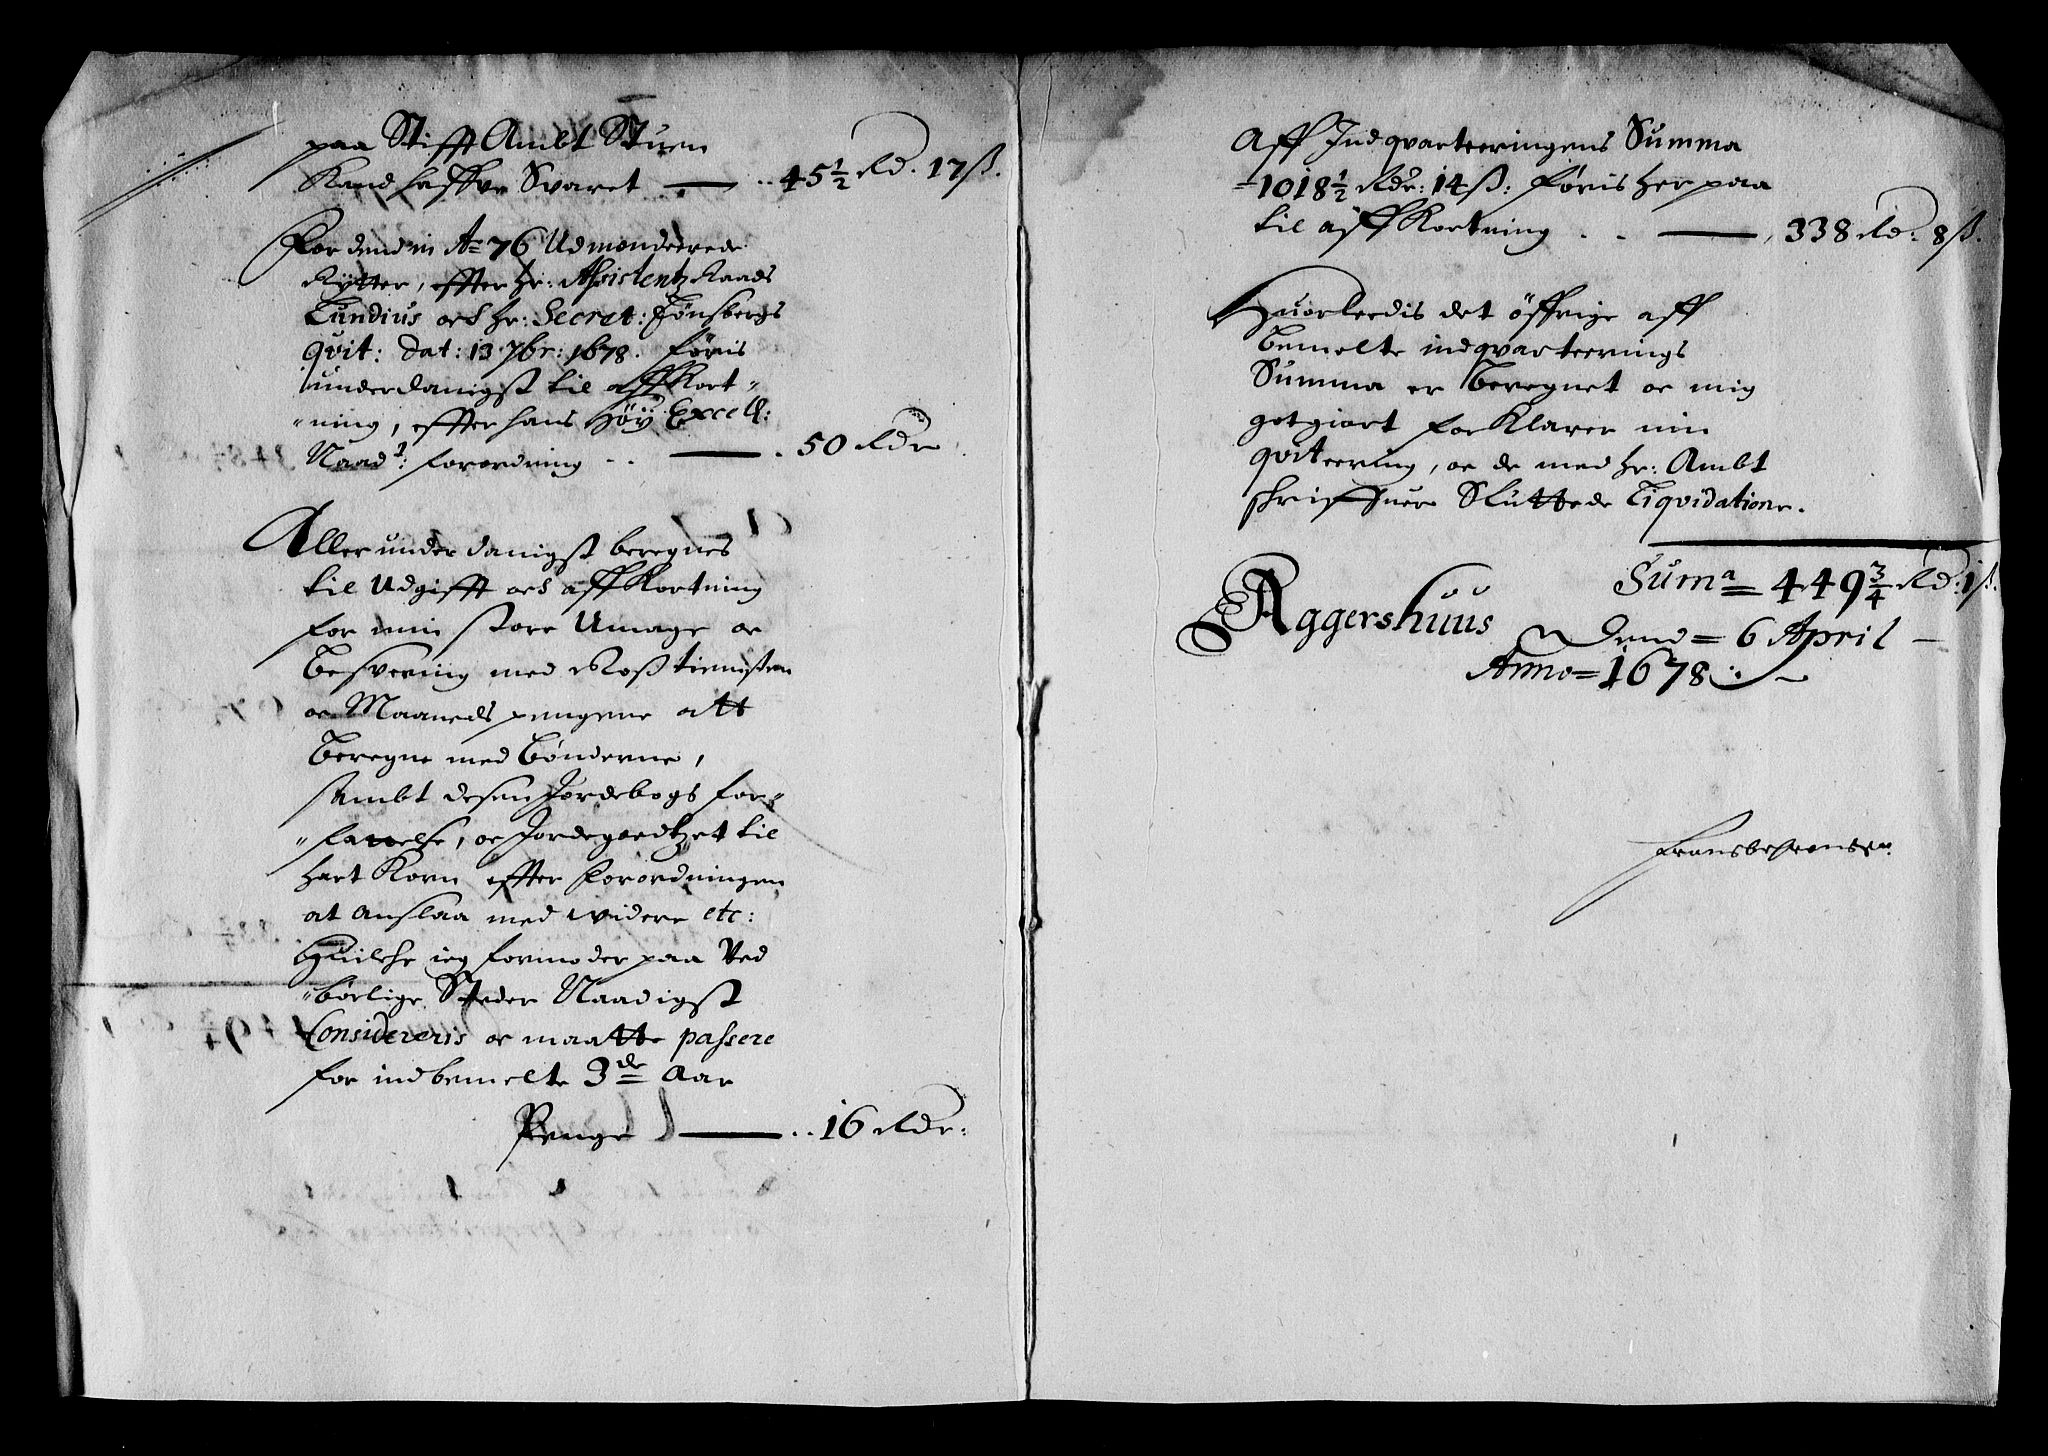 paa Stifft Ambt Stuen
Kand haffve Svaret —— .. 45½ Rd. 17ß.
For dend in Aº 76 Udmonderede
Rÿtter, effter hr: Assistentz Raads
Lundius och hr: Secret: Tønsbergs
Qvit: dat: 13 7br: 1678. føris
underdanigst til affKort„
„ning, effter hans Höÿ Excell:
Naadˢ: forordning .. —— . 50 Rdr
Aller underdanigst beregnes
til Udgifft och affKortning
for min store Umage oc
besvering med Roßtienisten
oc Maaneds pengene att
beregne med bønderne,
sambt desen Jordebogs for„
„fattelse, oc Jordegoedtzet til
hart Korn effter forordningen
at anslaa med widere etc:
Huilche ieg formoder paa Ved
„börlige Steder Naadigst
Considereris oc maatte passere
for indbemelte 3de Aar
Penge —— .. 16 Rdr:
Aff Indqvarteeringens Summa
=1018½ Rdr: 14ß: føris her paa
til affKortning . . —— . 338 Rd: 8ß.
Huorleedis det öffrige aff
bemelte indqvarteerings
Summa er beregnet oc mig
gotgiort forKlarer min
qviteering, oc de med hr: Ambt
schriffuer Sluttede Liqvidatione.
Sumᵃ = 449¾ Rd: 1ß.
Aggershuus
Dend = 6 April —
Anno = 1678 :